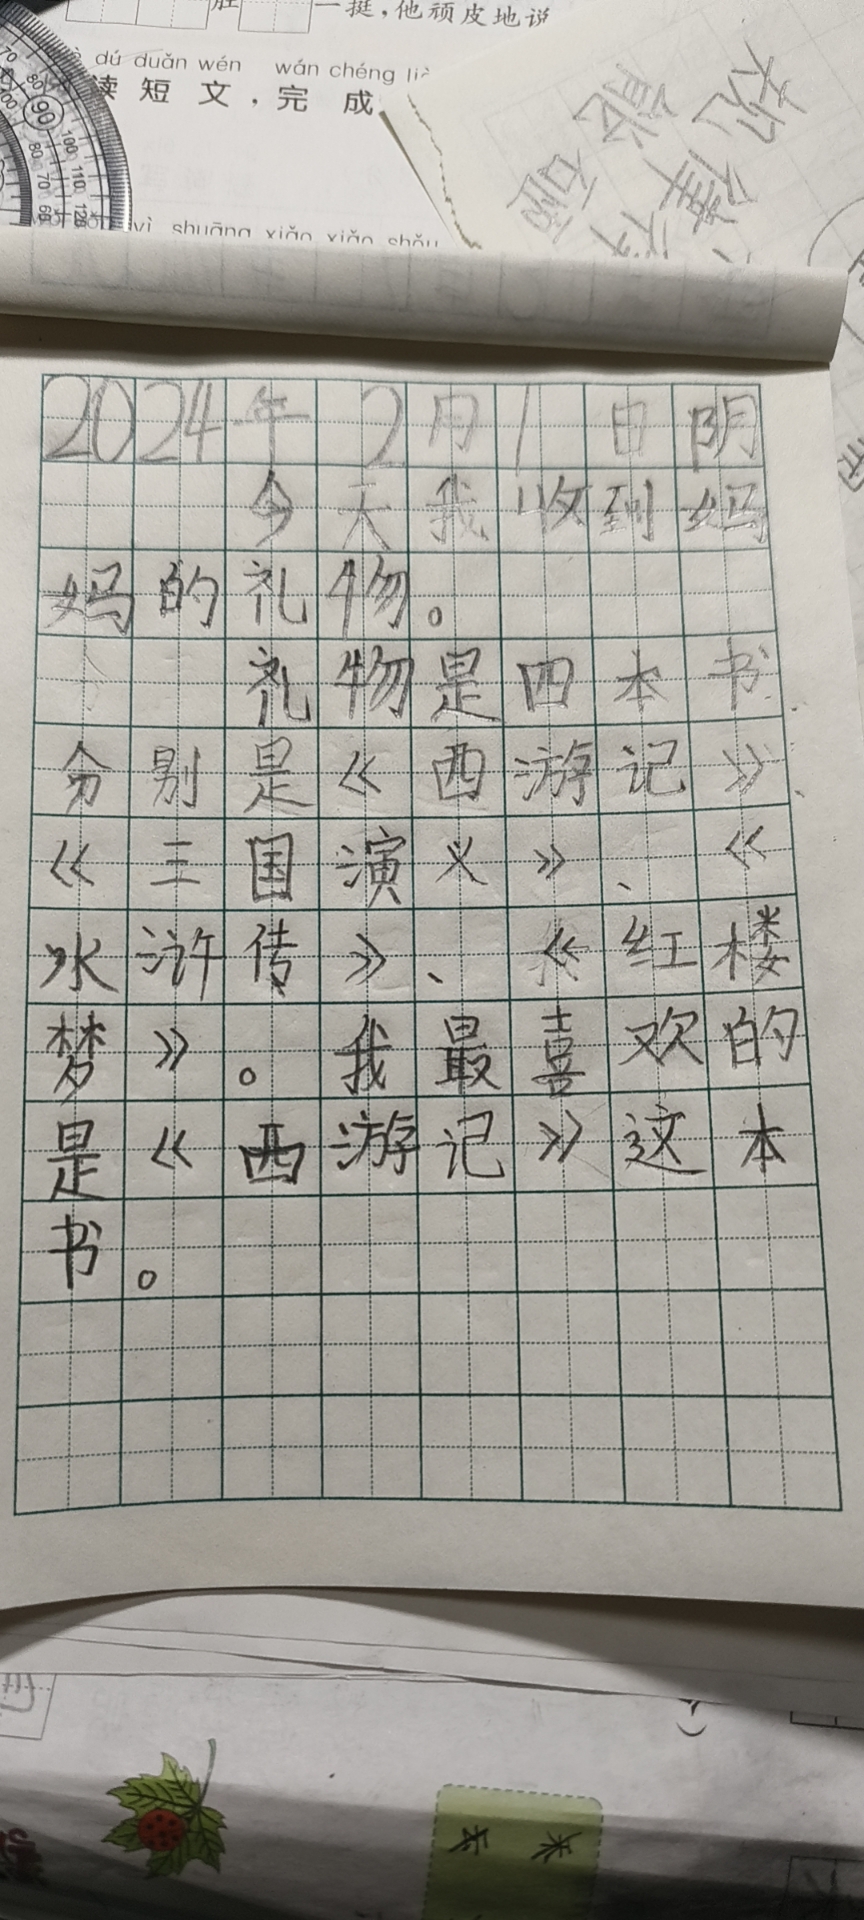 一挺，他顽皮地说
dú duǎn wén wán chéng
读短文，完成
shuāng xiǎo xiǎo shǒu
2024年2月1日阴
今天我收到妈
妈的礼物。
礼物是四本书
分别是《西游记》、
《三国演义》、《
水浒传》、《红楼
梦》。我最喜欢的
是《西游记》这本
书。